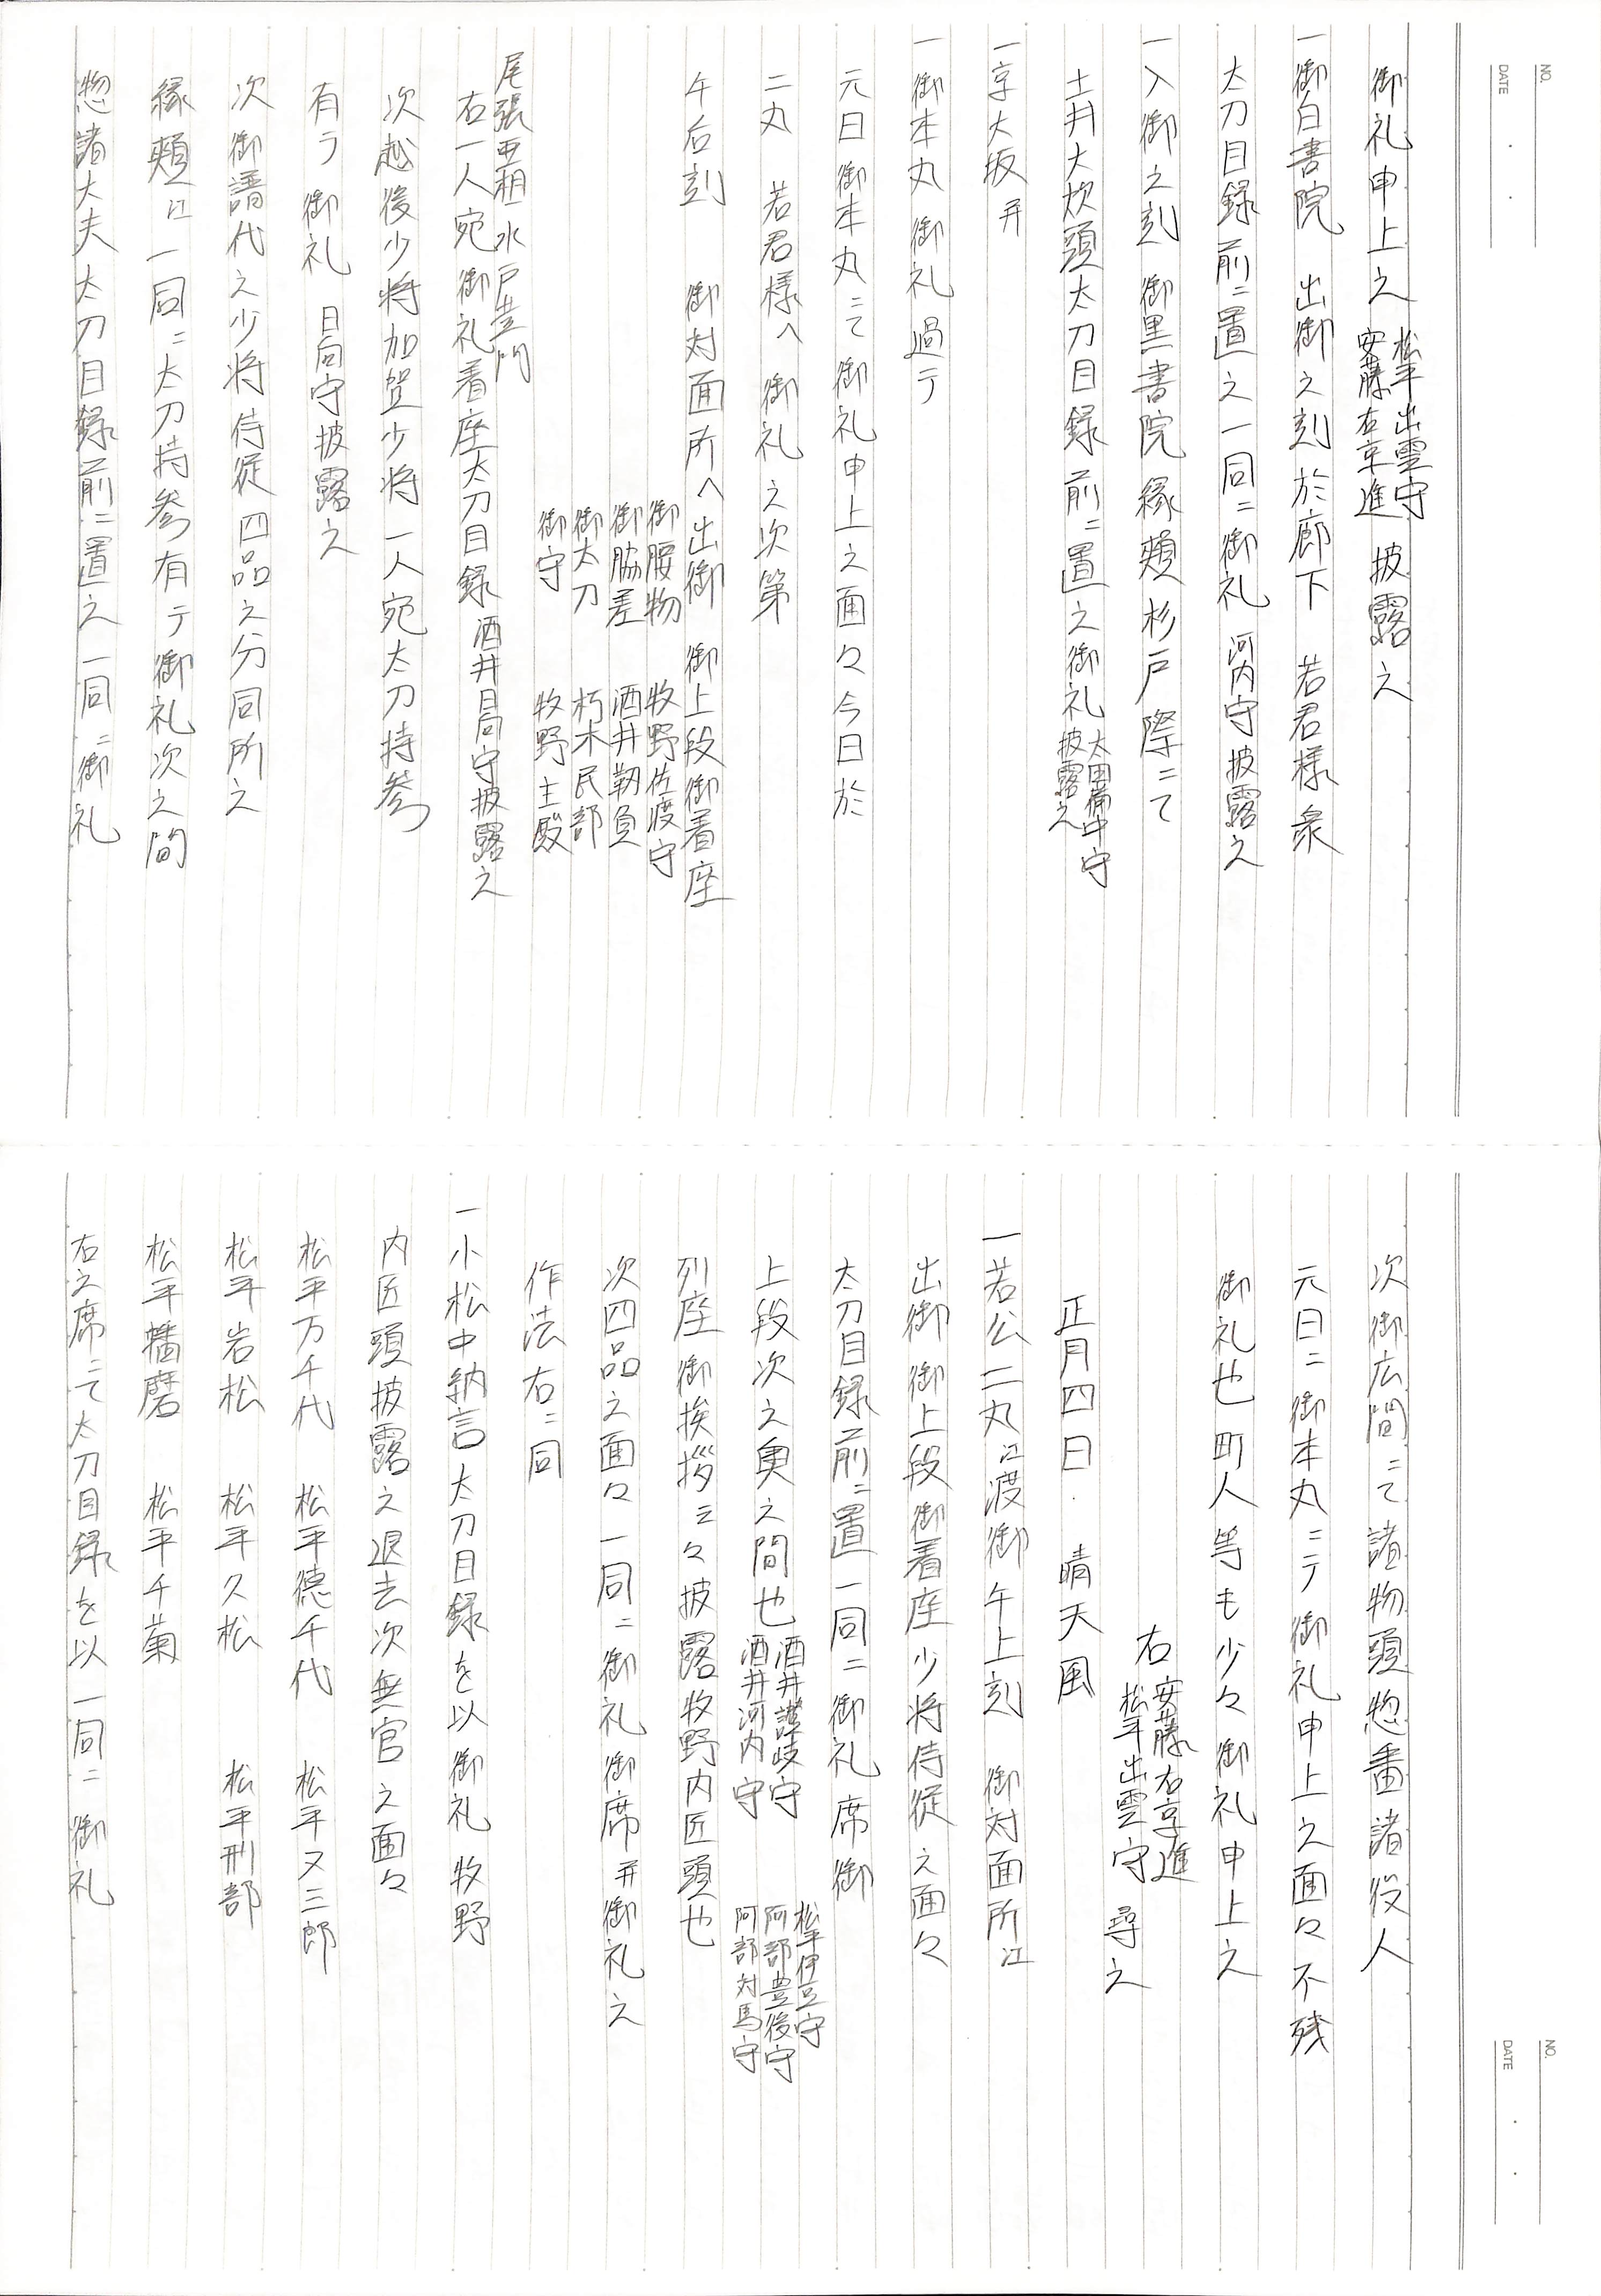 NO.
DATE
御礼申上之 松平出雲守 安藤右京進 披露之
一御白書院 出御之刻於廊下 若君様衆
太刀目録前ニ置之一同ニ御礼 河内守披露之
一入御之刻 御黒書院縁頬杉戸際ニて
土井大炊頭太刀目録前ニ置之御礼 太田備中守 披露之
一京大坂并
一御本丸御礼過テ
元日御本丸ニて御礼申上之面々今日於
二丸 若君様へ御礼之次第
午后刻 御対面所へ出御 御上段御着座
御腰物 牧野佐渡守
御脇差 酒井靭負
御太刀 朽木民部
御守 牧野主殿
尾張亜相 水戸黄門
右一人宛御礼着座太刀目録 酒井日向守披露之
次越後少将加賀少将一人宛太刀持参
有テ御礼 日向守披露之
次御譜代之少将侍従四品之分同所之
縁頬江一同ニ太刀持参有テ御礼次之間
惣諸大夫太刀目録前ニ置之一同ニ御礼
NO.
DATE
次御広間ニて諸物頭惣畫諸役人
元日ニ御本丸ニテ御礼申上之面々不残
御礼也町人等も少々御礼申上之
右 安藤右京進 松平出雲守 尋之
正月四日 晴天風
一若公二丸江渡御午上刻 御対面所江
出御御上段御着座少将侍従之面々
太刀目録前ニ置一同ニ御礼席御
上段次之奥之間也 酒井讃岐守 酒井河内守 松平伊豆守 阿部豊後守 阿部対馬守
列座御挨拶云々披露牧野内匠頭也
次四品之面々一同ニ御礼御席并御礼之
作法右ニ同
一小松中納言太刀目録を以御礼牧野
内匠頭披露之退去次無官之面々
松平万千代 松平徳千代 松平又三郎
松平岩松 松平久松 松平刑部
松平幡磨 松平千菊
右之席ニて太刀目録を以一同ニ御礼